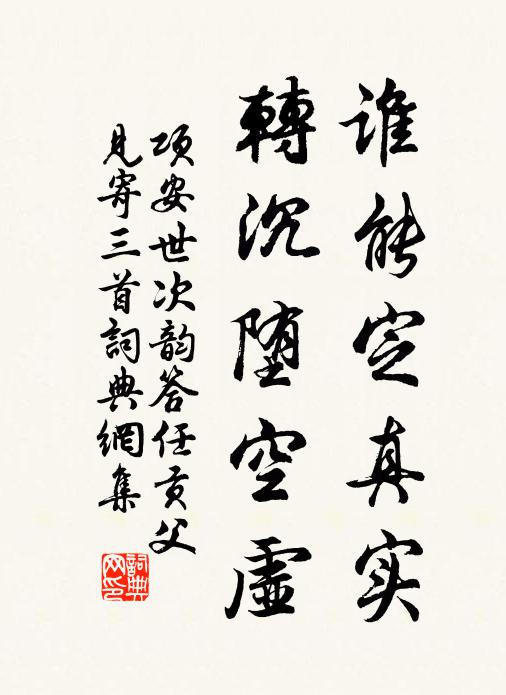 谁能定真实
轉沉堕空虛
项安世次韵答任贡父
見寄三首詞典網集
詞典
网印